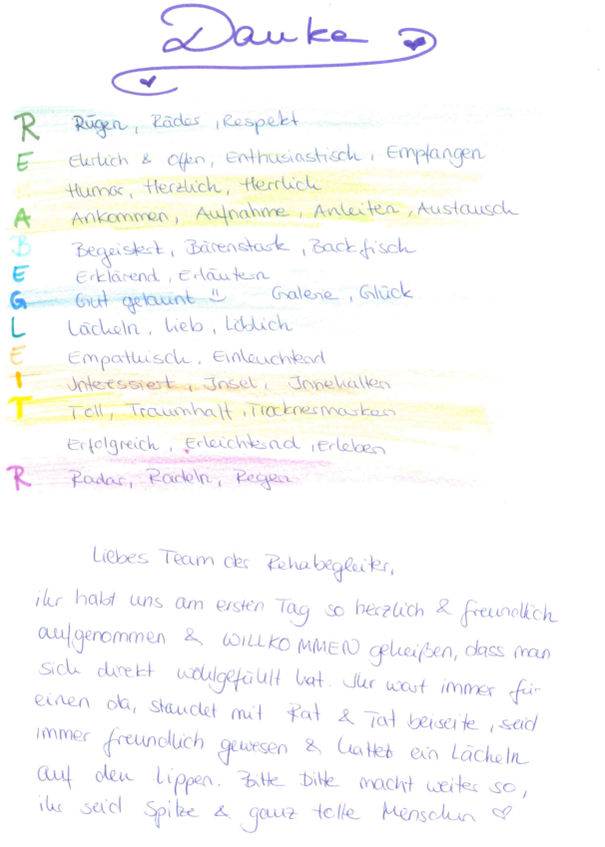 Danke
R Rügen, Rädes, Respekt
E Ehrlich & Offen, Enthusiastisch, Empfangen
Humor, Herzlich, Herrlich
A Ankommen, Aufnahme, Anleiten, Austausch
B Begeistert, Bärenstark, Backfisch
E Erklärend, Erläutern
G Gut gelaunt Galerie, Glück
L Lächeln, Lieb, Löblich
E Empathisch, Einleuchtend
I Interessiert, Insel, Innehalten
T Toll, Traumhaft, Trocknermarken
Erfolgreich, Erleichternd, Erleben
R Radar, Radeln, Regen
Liebes Team der Rehabegleiter,
ihr habt uns am ersten Tag so herzlich & freundlich
aufgenommen & WILLKOMMEN geheißen, dass man
sich direkt wohlgefühlt hat. Ihr wart immer für
einen da, standet mit Rat & Tat beiseite, seid
immer freundlich gewesen & hattet ein Lächeln
auf den Lippen. Bitte Bitte macht weiter so,
ihr seid Spitze & ganz tolle Menschen ♡